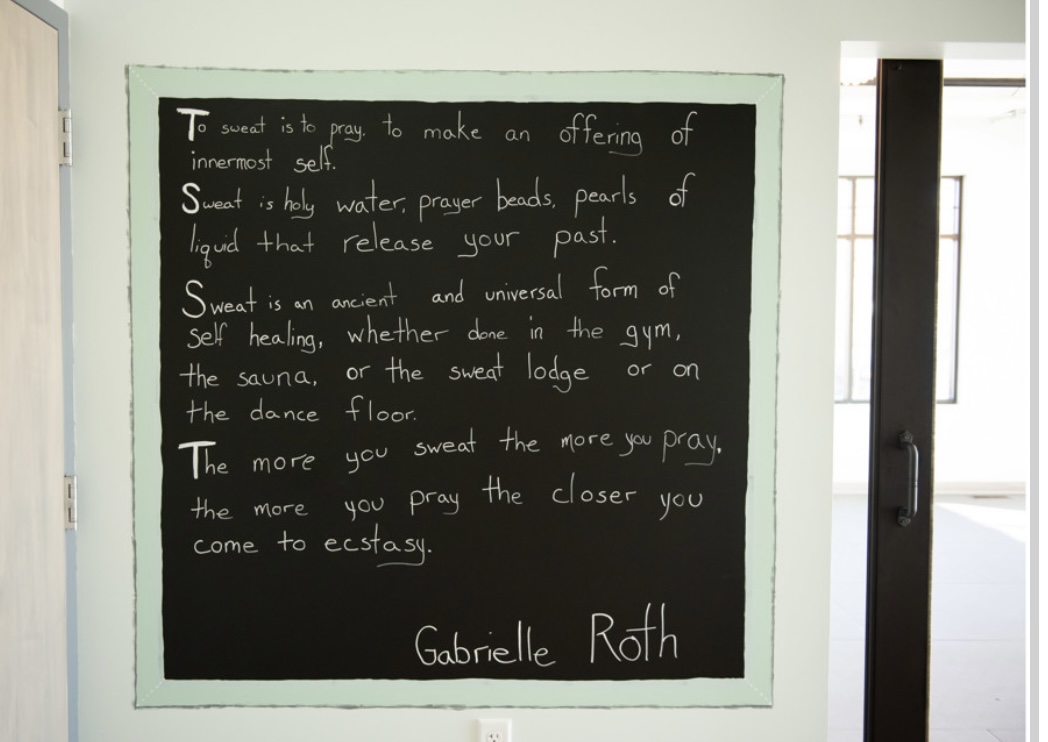 To sweat is to pray. to make an offering of
innermost self.
Sweat is holy water, prayer beads, pearls of
liquid that release your past.
Sweat is an ancient and universal form of
self healing, whether done in the gym,
the sauna, or the sweat lodge or on
the dance floor.
The more you sweat the more you pray,
the more you pray the closer you
come to ecstasy.
Gabrielle Roth